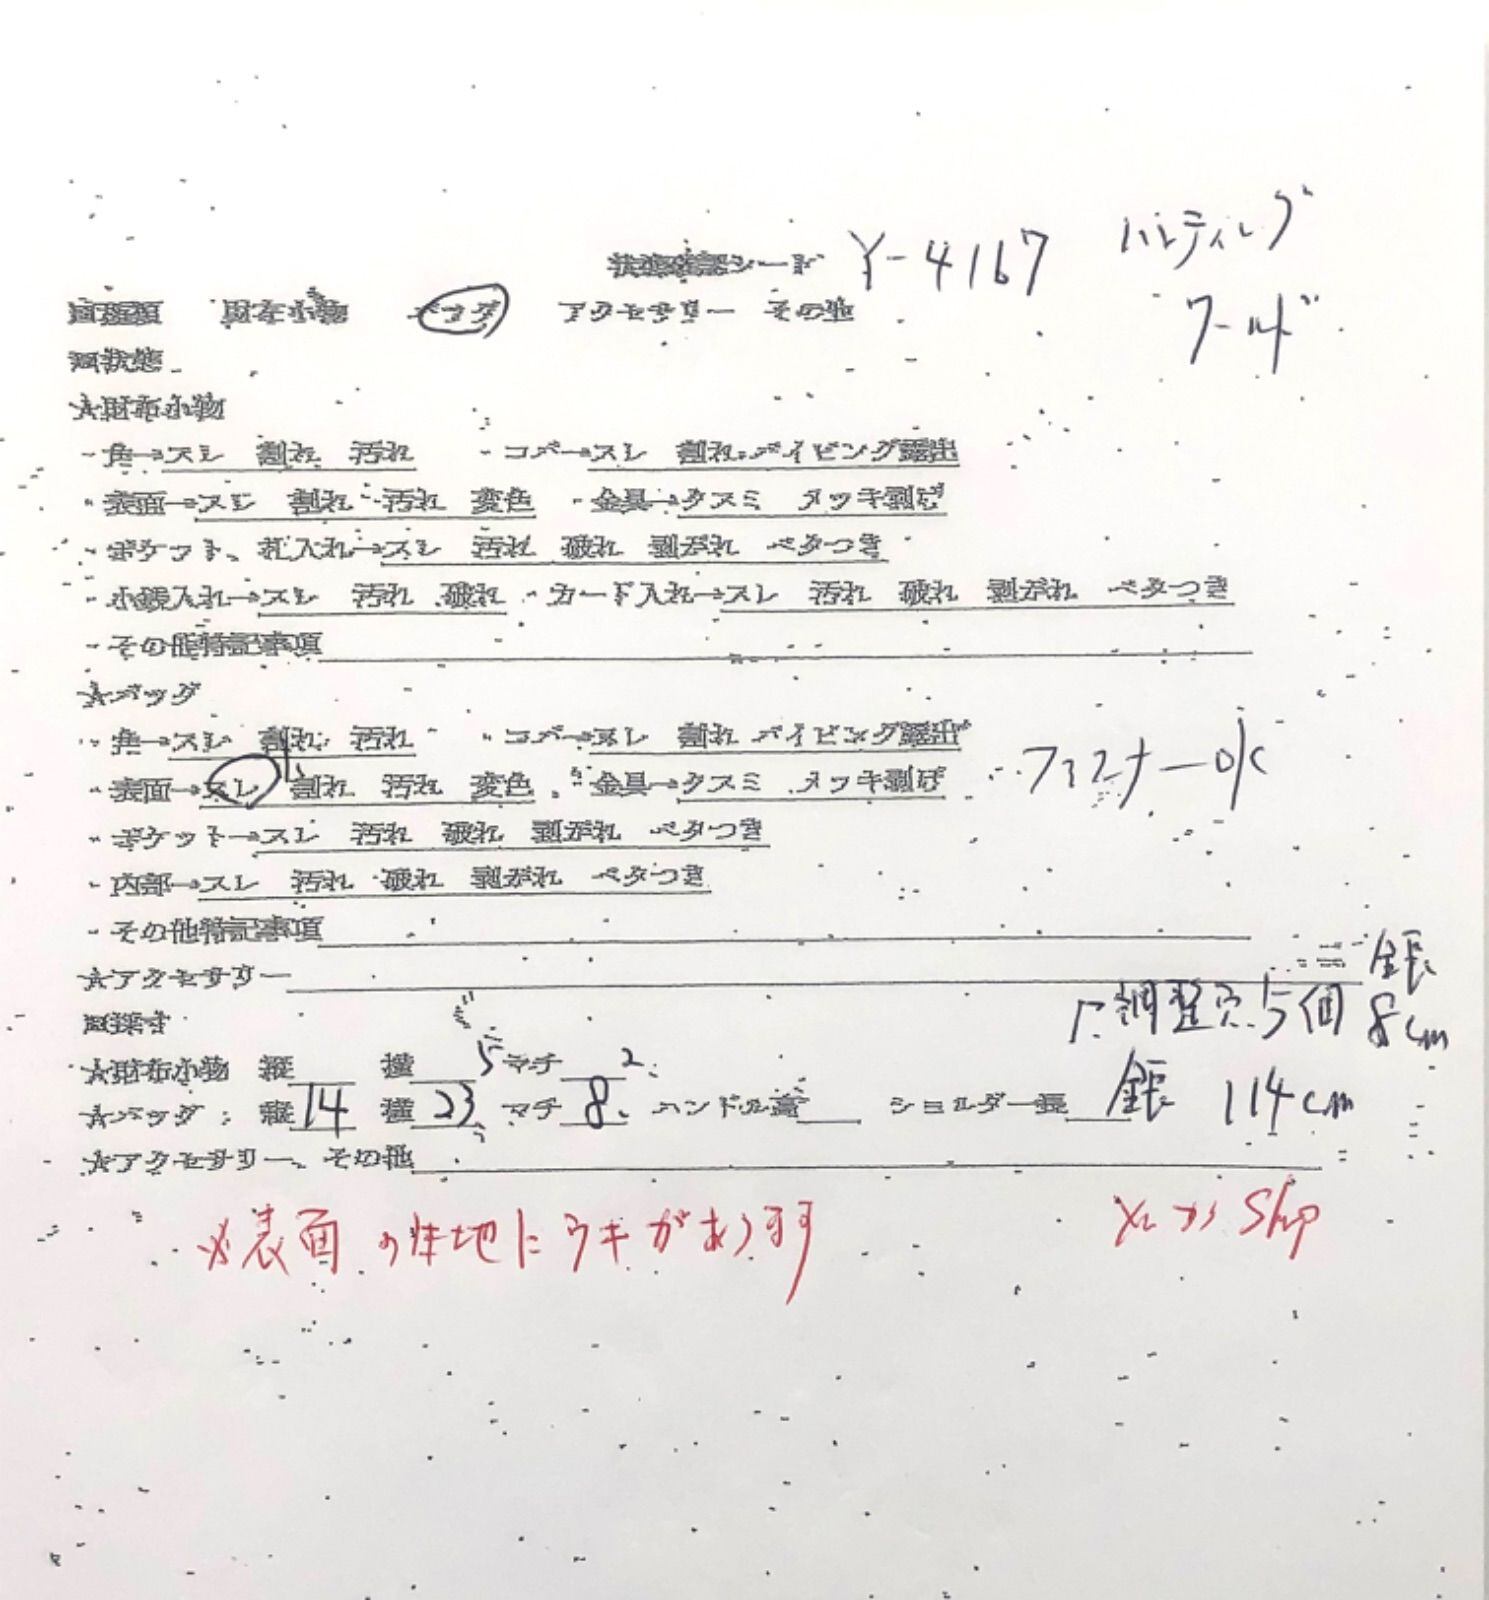 状態確認シート Y-4167 ハンティング
ワールド
□種類 財布小物 バッグ アクセサリー その他
□状態
★財布小物
・角→スレ 割れ 汚れ ・コバ→スレ 割れ パイピング露出
・表面→スレ 割れ 汚れ 変色 ・金具→クスミ メッキ剥げ
・ポケット、札入れ→スレ 汚れ 破れ 剥がれ ベタつき
・小銭入れ→スレ 汚れ 破れ ・カード入れ→スレ 汚れ 破れ 剥がれ ベタつき
・その他特記事項
★バッグ
・角→スレ 割れ 汚れ ・コバ→スレ 割れ パイピング露出
・表面→スレ 小 割れ 汚れ 変色 ・金具→クスミ メッキ剥げ ファスナーOK
・ポケット→スレ 汚れ 破れ 剥がれ ベタつき
・内部→スレ 汚れ 破れ 剥がれ ベタつき
・その他特記事項
★アクセサリー
調整穴5個 全長 8cm
□採寸
★財布小物 縦 横 マチ
★バッグ 縦 14 横 23.5 マチ 8.2 ハンドル高 ショルダー長 全長 114cm
★アクセサリー、その他
※表面の生地にウキがあります